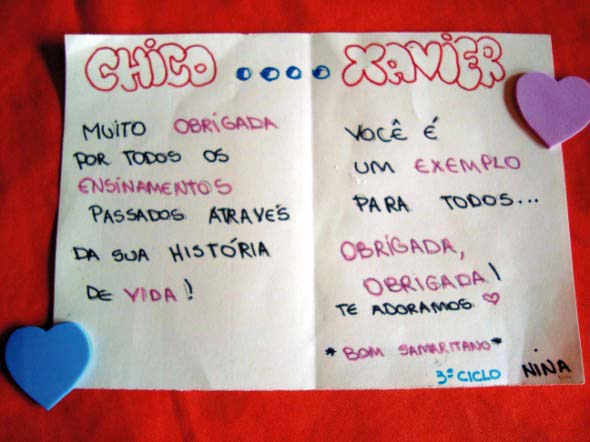 CHICO .... XAVIER
MUITO OBRIGADA
POR TODOS OS
ENSINAMENTOS
PASSADOS ATRAVÉS
DA SUA HISTÓRIA
DE VIDA!
VOCÊ É
UM EXEMPLO
PARA TODOS...
OBRIGADA,
OBRIGADA!
TE ADORAMOS ♡
*BOM SAMARITANO*
3º CICLO NINA